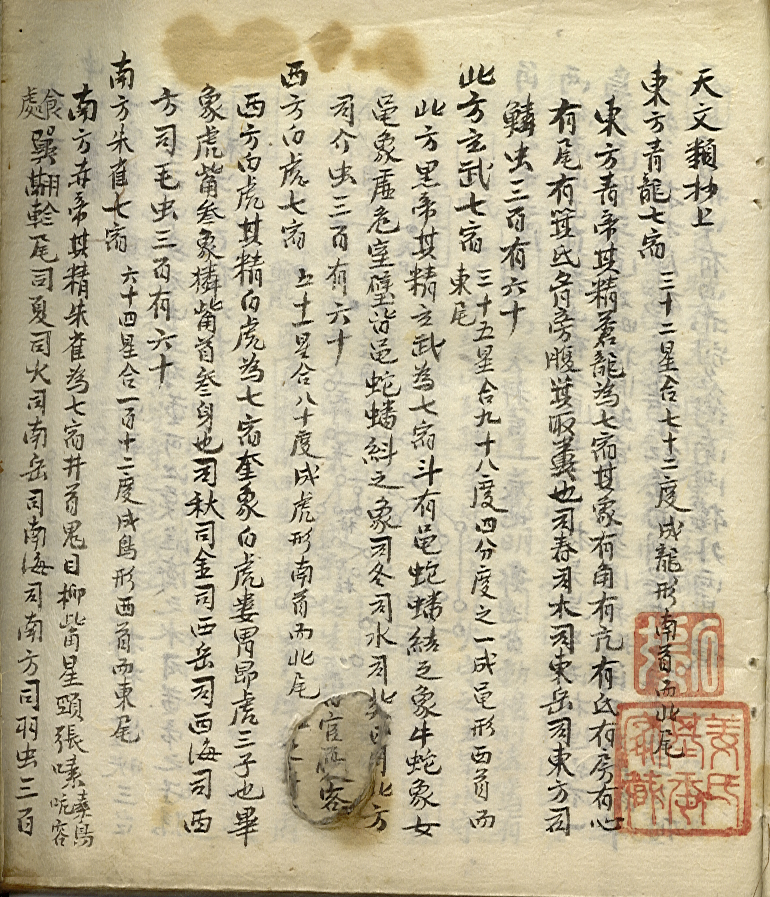 天文類抄上
東方青龍七宿 三十二星合七十二度成龍形南首而北尾
東方青帝其精蒼龍為七宿其象有角有亢有氐有房有心
有尾有箕氐胷房腹箕所糞也司春司木司東岳司東方司
鱗虫三百有六十
北方玄武七宿 三十五星合九十八度四分度之一成黽形西首而東尾
北方黑帝其精玄武為七宿斗有黽蛇蟠結之象牛蛇象女
黽象虛危室壁皆黽蛇蟠糾之象司冬司水司北 司北方
司介虫三百有六十
西方白虎七宿 五十一星合八十度成虎形南首而北尾
西方白帝其精白虎為七宿奎象白虎婁胃昴虎三子也畢
象虎觜參象獜觜首參身也司秋司金司西岳司西海司西
方司毛虫三百有六十
南方朱雀七宿 六十四星合一百十二度成鳥形西首而東尾
南方赤帝其精朱雀為七宿井首鬼目柳觜星頸張嗉嗉鳥吭容
食處翼翮軫尾司夏司火司南岳司南海司南方司羽虫三百